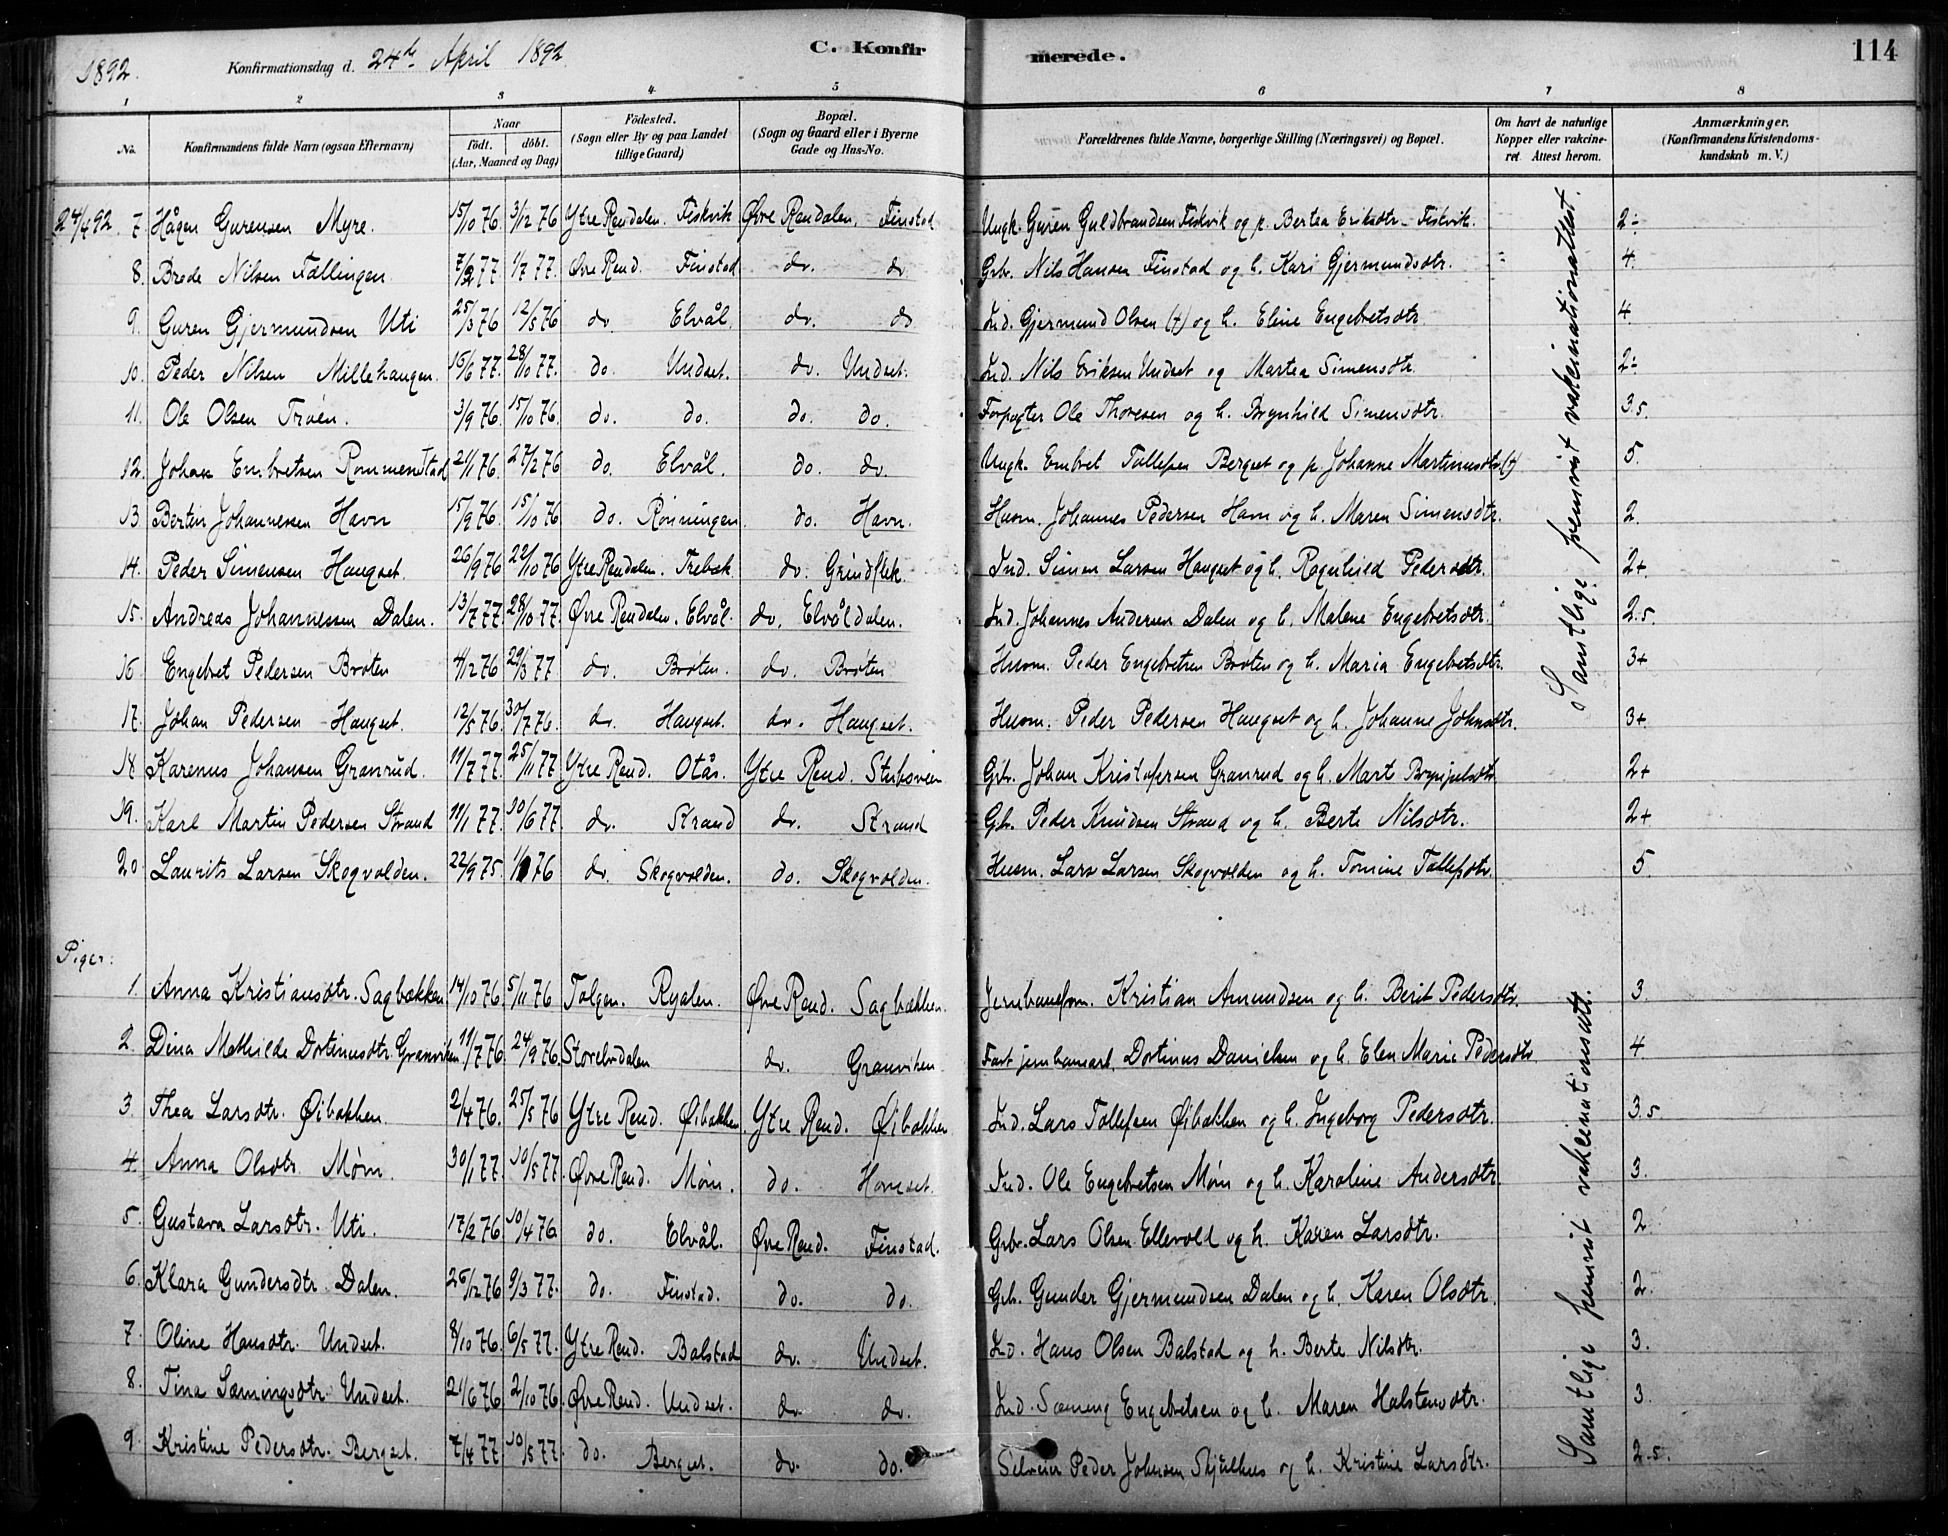 1892. Konfirmationsdag d. 24de April 1892 C. Konfir merede. 114
1 2 3 4 5 6 7 8
No. Konfirmandens fulde Navn (ogsaa Efternavn) Naar födt. döbt. (Aar, Maaned og Dag) Födested. (Sogn eller By og paa Landet tillige Gaard) Bopæl. (Sogn og Gaard eller i Byerne Gade og Hus-No. Forældrenes fulde Navne, borgerlige Stilling (Næringsvei) og Bopæl. Om havt de naturlige Kopper eller vakcineret. Attest herom. Anmærkninger. (Konfirmandens Kristendomskundskab m. V.)
24/4 92 7. Hågen Gurensen Myre. 15/10 76 3/12 76 Ytre Rendalen. Fiskvik Øvre Rendalen. Finstad Ungk. Guren Guldbrandsen Fiskvik og p. Bertea Eriksdtr. Fiskvik. 2÷
8. Brede Nilsen Fallingen 1/7 77. Øvre Rend. Finstad do. do Grb. Nils Hansen Finstad og h. Kari Gjermundsdtr. 4.
9. Guren Gjermundsen Uti 25/3 76 12/5 76 do Elvål. do. do Ind. Gjermund Olsen (†) og h. Eline Engebretsdtr 4.
10. Peder Nilsen Millehaugen. 16/6 77. 28/10 77. do. Undset. do. Undset. Ind. Nils Eriksen Undset og Martea Simensdtr. 2÷
11. Ole Olsen Troén. 3/9 76. 15/10 76. do. do. do. do. Forpagter Ole Thoresen og h. Brynhild Simensdtr. 3.5.
12. Johan Embretsen Rommenstad 21/1 76. 27/2 76 do. Elvål. do. do. Ungk. Embret Tollefsen Bergset og p. Johanne Martinusdtr (†) 5.
13. Bertin Johannessen Havn 15/9 76. 15/10 76 do. Rönningen. do. Havn. Husm. Johannes Pedersen Havn og h. Maren Simensdtr. 2.
14. Peder Simensen Haugset. 26/9 76 22/10 76 Ytre Rendalen. Trebæk do. Grindflek. Ind. Simen Larsen Haugset og h. Ragnhild Pedersdtr. 2+.
15. Andreas Johannessen Dalen. 13/7 77. 28/10 77. Øvre Rendalen. Elvål. do. Elvåldalen. Ind. Johannes Andersen Dalen og h. Malene Engebretsdtr. 2.5.
16. Engebret Pedersen Bråten 4/12 76 29/3 77 do. Bråten. do. Bråten Husm. Peder Engebretsen Bråten og h. Maria Engebretsdtr. 3+
17. Johan Pedersen Haugset. 12/5 76. 30/7 76. do. Haugset. do. Haugset. Husm. Peder Pedersen Haugset og h. Johanne Johnsdtr. 3+
18 Karenus Johansen Granrud. 11/7 77. 25/11 77 Ytre Rend. Otås. Ytre Rend. Stubsveen Grb. Johan Kristofersen Granrud og h. Mart Brynjulsdtr 2+
19. Karl Martin Pedersen Strand 11/1 77. 10/6 77. do. Strand do. Strand Gb. Peder Knudsen Strand og h. Berte Nilsdtr. 2+
20 Laurits Larsen Skogvolden. 22/9 75. 76 do. Skogvolden. do. Skogvolden. Husm. Lars Larsen Skogvolden og h. Tomine Tollefsdtr. 5.
Samtlige fremvist vakcinationattest.
Piger:
1. Anna Kristiansdtr. Sagbækken 14/10 76. 5/11 76 Tolgen. Ryalen. Øvre Rend. Sagbækken. Jernbaneform. Kristian Amundsen og h. Berit Pedersdtr. 3.
2. Dina Mathilde Dortinusdtr. Granviken 11/7 76. 24/9 76. Storelvdalen do. Granviken. Fast jernbanearb. Dortinus Danielsen og h. Elen Marie Pedersdtr 4
3. Thea Larsdtr. Øibækken 2/4 76. 25/5 76 Ytre Rend. Øibækken. Ytre Rend. Øibækken Ind. Lars Tollefsen Øibækken og h. Ingeborg Pedersdtr. 3.5
4. Anna Olsdtr. Mörn. 30/1 77. 10/5 77. Øvre Rend. Mörn. do. Horneset. Ind. Ole Engebretsen Mörn og h. Karoline Andersdtr. 3.
5. Gustava Larsdtr. Uti. 17/2 76. 10/4 76. do. Elvål. Øvre Rend. Finstad. Grb. Lars Olsen Ellevold og h. Karen Larsdtr. 2.
6. Klara Gundersdtr. Dalen. 26/12 76 9/3 77. do. Finstad. do. do. Grb. Gunder Gjermundsen Dalen og h. Karen Olsdtr. 2.
7. Oline Hansdtr. Undset. 8/10 76. 6/5 77. Ytre Rend. Balstad do. Undset. Ind. Hans Olsen Balstad og h. Berte Nilsdtr. 3.
8. Tina Sæmingsdtr. Undset. 21/6 76 2/10 76. Øvre Rend. Undset. do. do. Ind. Sæming Engebretsen og h. Maren Halstensdtr. 3
9. Kristine Pedersdtr. Bergset. 7/4 77. 10/5 77. do. Bergset. do. do. Selveier Peder Johnsen Skjulhus og h. Kristine Larsdtr. 2.5.
Samtlige fremvist vakcinationsatt.